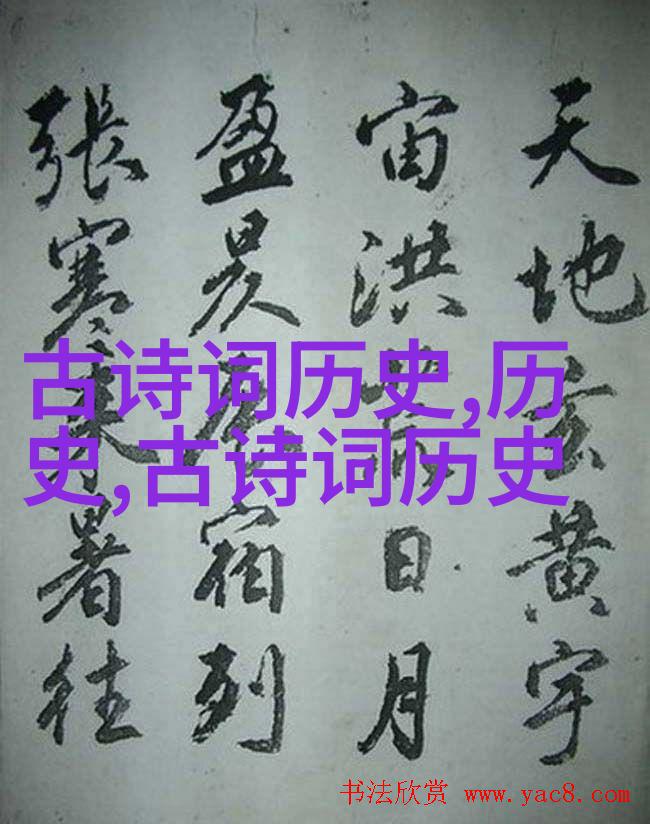 天地玄黄宇
宙洪日月
盈昃宿列
張寒来暑往
古诗词历史,历
史,古诗词历史
书法欣赏 www.yac8.com